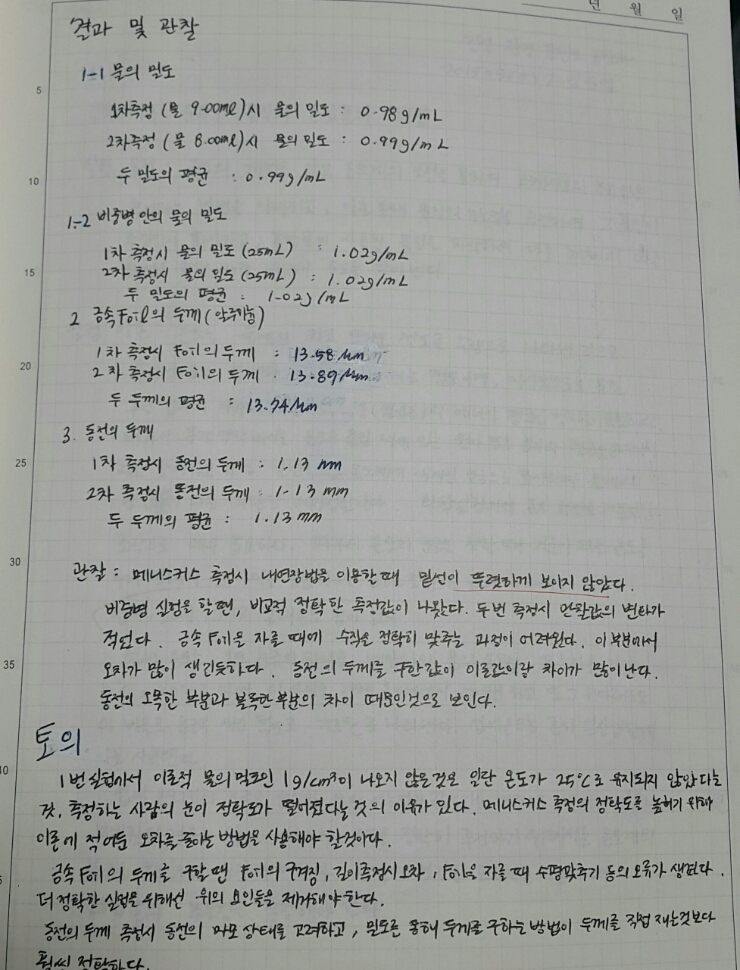 년 월 일
결과 및 관찰
1-1 물의 밀도
5
1차측정 (물 9.00ml)시 물의 밀도 : 0.98g/mL
2차측정 (물 8.00ml)시 물의 밀도 : 0.99g/mL
10
두 밀도의 평균 : 0.99g/mL
1-2 비중병 안의 물의 밀도
1차 측정시 물의 밀도 (25mL) : 1.02g/mL
15
2차 측정시 물의 밀도 (25mL) : 1.02g/mL
두 밀도의 평균 : 1.02g/mL
2 금속 Foil의 두께 (알루미늄)
1차 측정시 Foil의 두께 : 13.58μm
20
2차 측정시 Foil의 두께 : 13.89μm
두 두께의 평균 : 13.74μm
3. 동전의 두께
25
1차 측정시 동전의 두께 : 1.13 mm
2차 측정시 동전의 두께 : 1.13 mm
두 두께의 평균 : 1.13mm
30
관찰 : 메니스커스 측정시 내연장법을 이용할때 밑선이 뚜렷하게 보이지 않았다.
비중병 실험을 할땐, 비교적 정확한 측정값이 나왔다. 두번 측정시 관찰값의 변화가
적었다. 금속 Foil을 자를 때에 수직을 정확히 맞추는 과정이 어려웠다. 이 부분에서
35
오차가 많이 생긴듯하다. 동전의 두께를 구한값이 이론값이랑 차이가 많이난다.
동전의 오목한 부분과 볼록한 부분의 차이 때문인것으로 보인다.
토의
1번실험에서 이론적 물의 밀도인 1g/cm³이 나오지 않은것은 일단 온도가 25℃로 유지되지 않았다는
것, 측정하는 사람의 눈이 정확도가 떨어졌다는 것의 이유가 있다. 메니스커스 측정의 정확도를 높히기 위해
이론에 적어둔 오차를 줄이는 방법을 사용해야 할것이다.
금속 Foil의 두께를 구할 땐 Foil의 구겨짐, 길이측정시 오차, Foil을 자를 때 수평맞추기 등의 오류가 생겼다.
더 정확한 실험을 위해선 위의 요인들을 제거해야한다.
동전의 두께 측정시 동전의 마모 상태를 고려하고, 밀도를 통해 두께를 구하는 방법이 두께를 직접 재는것보다
훨씬 정확하다.